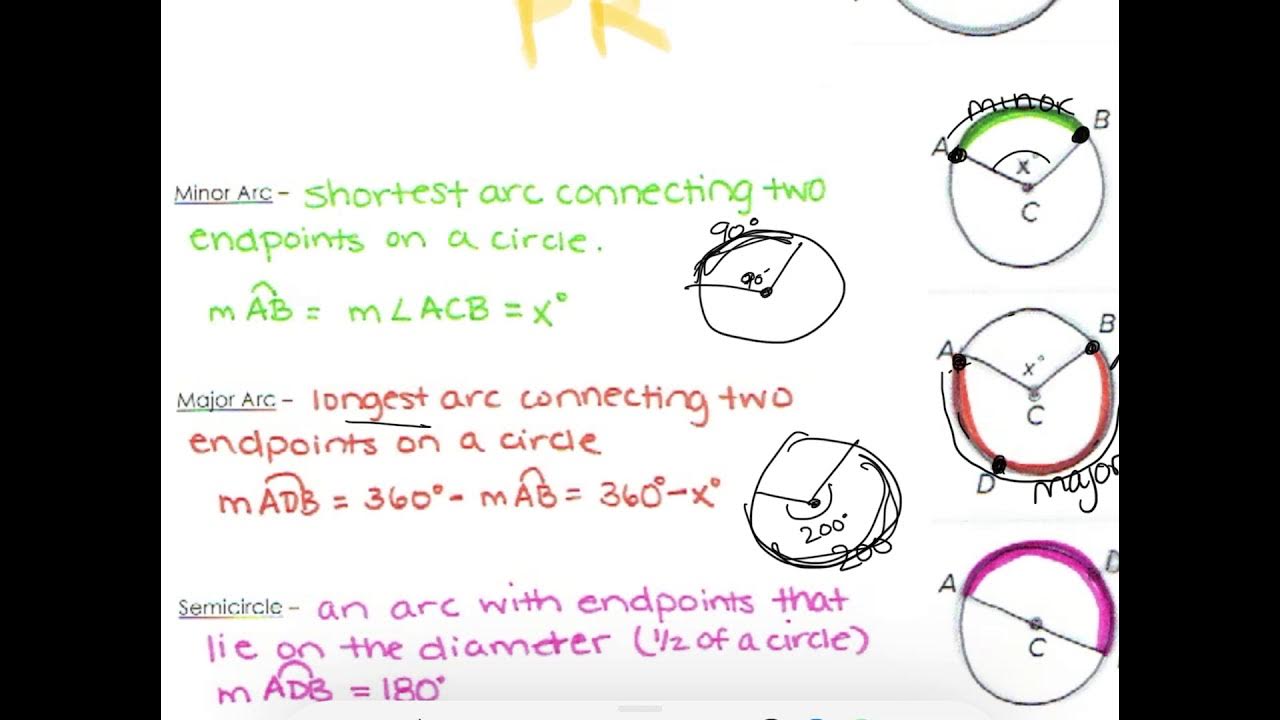 PR
Minor Arc - shortest arc connecting two
endpoints on a circle.
m AB = m∠ACB = x°
90°
90°
minor
A
B
x°
C
Major Arc - longest arc connecting two
endpoints on a circle
m ADB = 360° - m AB = 360° - x°
200°
200
A
B
x°
C
D
major
Semicircle - an arc with endpoints that
lie on the diameter (1/2 of a circle)
m ADB = 180°
A
D
C